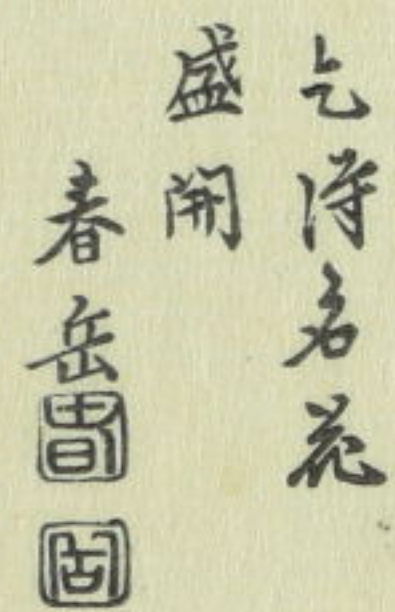 乞得名花
盛開
春岳
旾